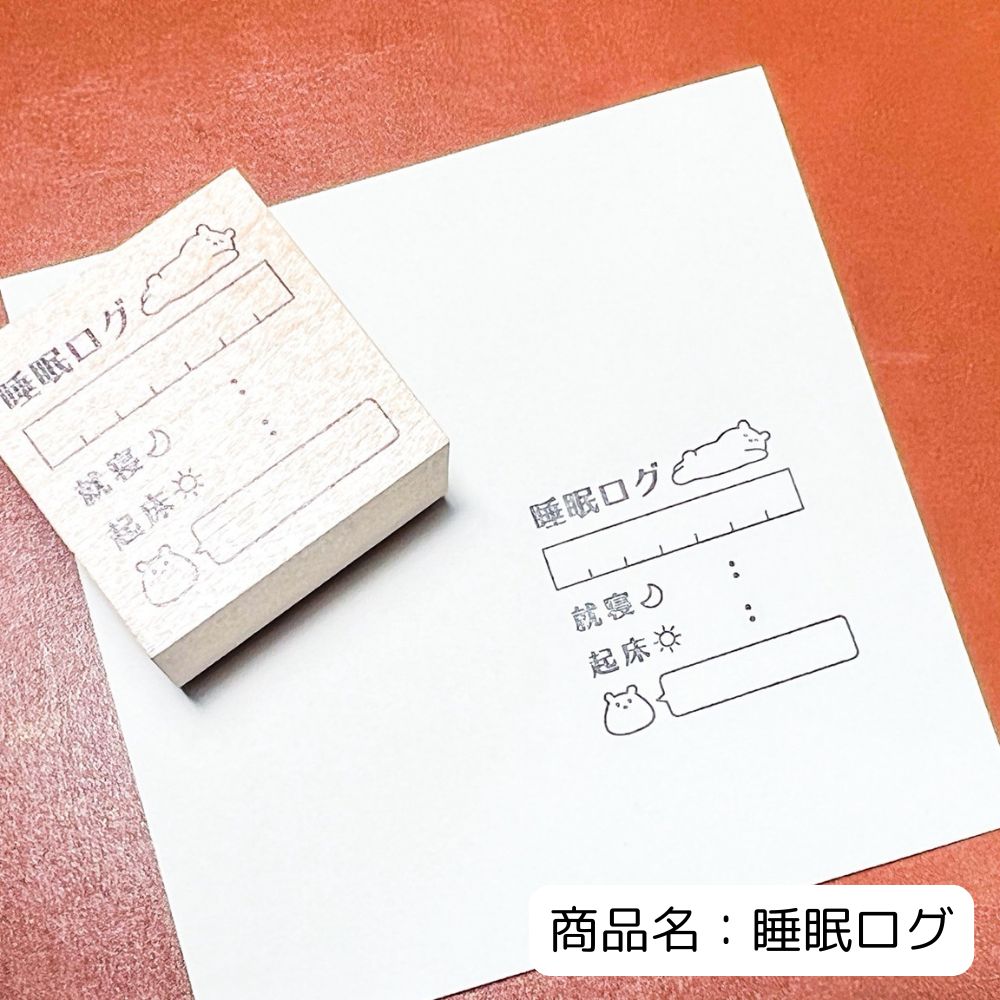 睡眠ログ
就寝
起床
睡眠ログ
就寝
:
起床
:
商品名：睡眠ログ